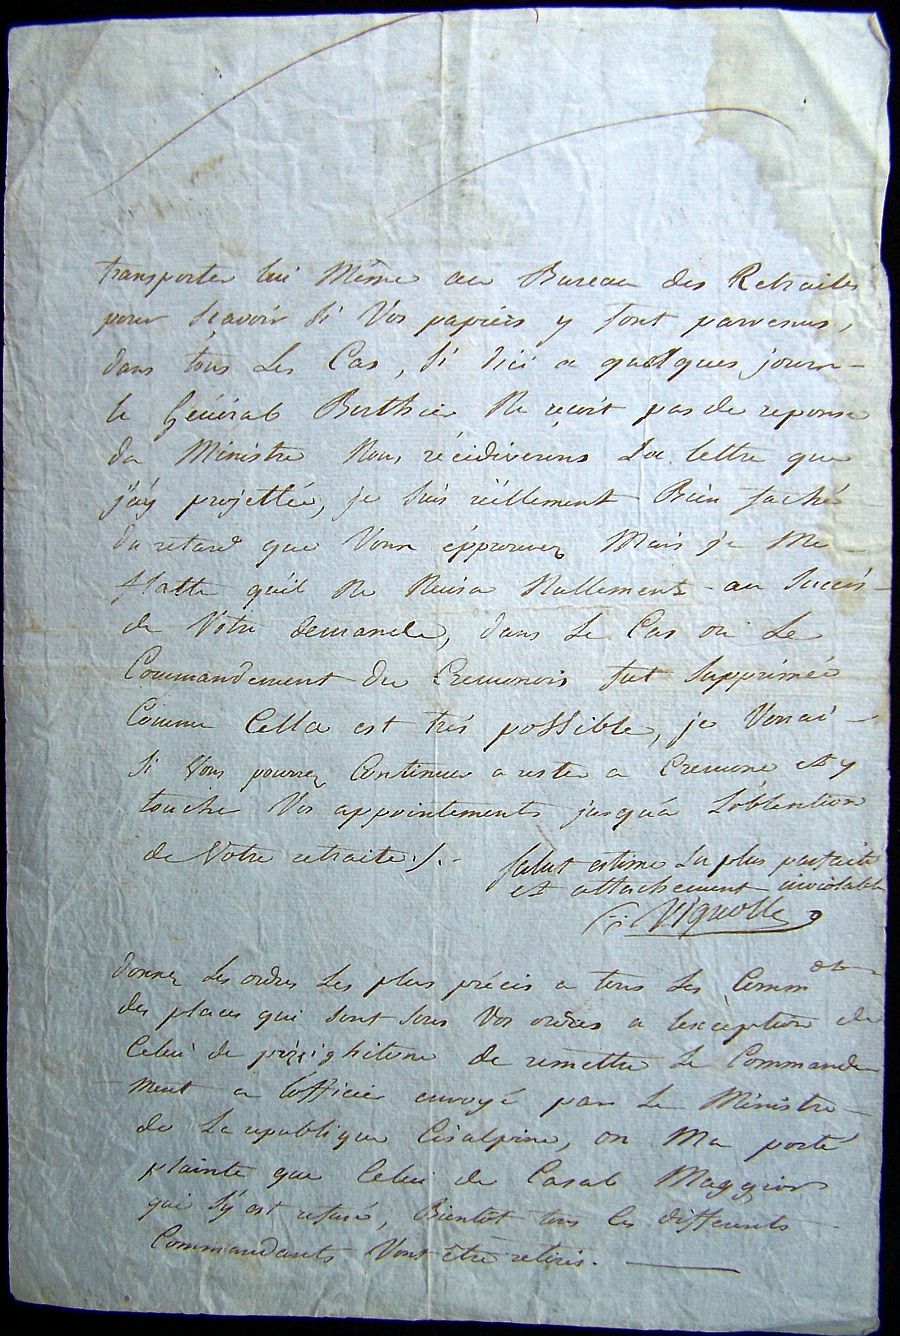 transporter lui Même au Bureau des Retraites
pour scavoir si Vos papiers y sont parvenus,
dans tous Les Cas, si dici a quelques jours -
le Général Berthier Ne reçoit pas de reponse
du Ministre Nous récidiverons La lettre que
j'ay projettée, je suis réellement Bien faché
du retard que Vous éprouvez Mais je Me
flatte qu'il Ne Nuira Nullement au Succès -
de Votre demande, dans Le Cas où Le
Commandement du Cremonois fut Supprimée
Comme Cella est très possible, je Verrai -
si Vous pourrez Continuer a rester a Cremone et y
toucher Vos appointements jusqu'a L'obtention
de Votre retraite ./. -
Salut estime La plus parfaite
et attachement inviolable
Vignolle
donnez Les ordres Les plus précis a tous Les Comm dts
des places qui sont sous Vos ordres a lexception de
Celui de pizzighitone de remettre Le Commande
ment a l'officier envoyé par Le Ministre -
de La republique Cisalpine, on Ma porté
plainte que Celui de Casal Maggior
qui s'y est refusé, Bientôt tous les differents -
Commandants Vont être retirés. ———